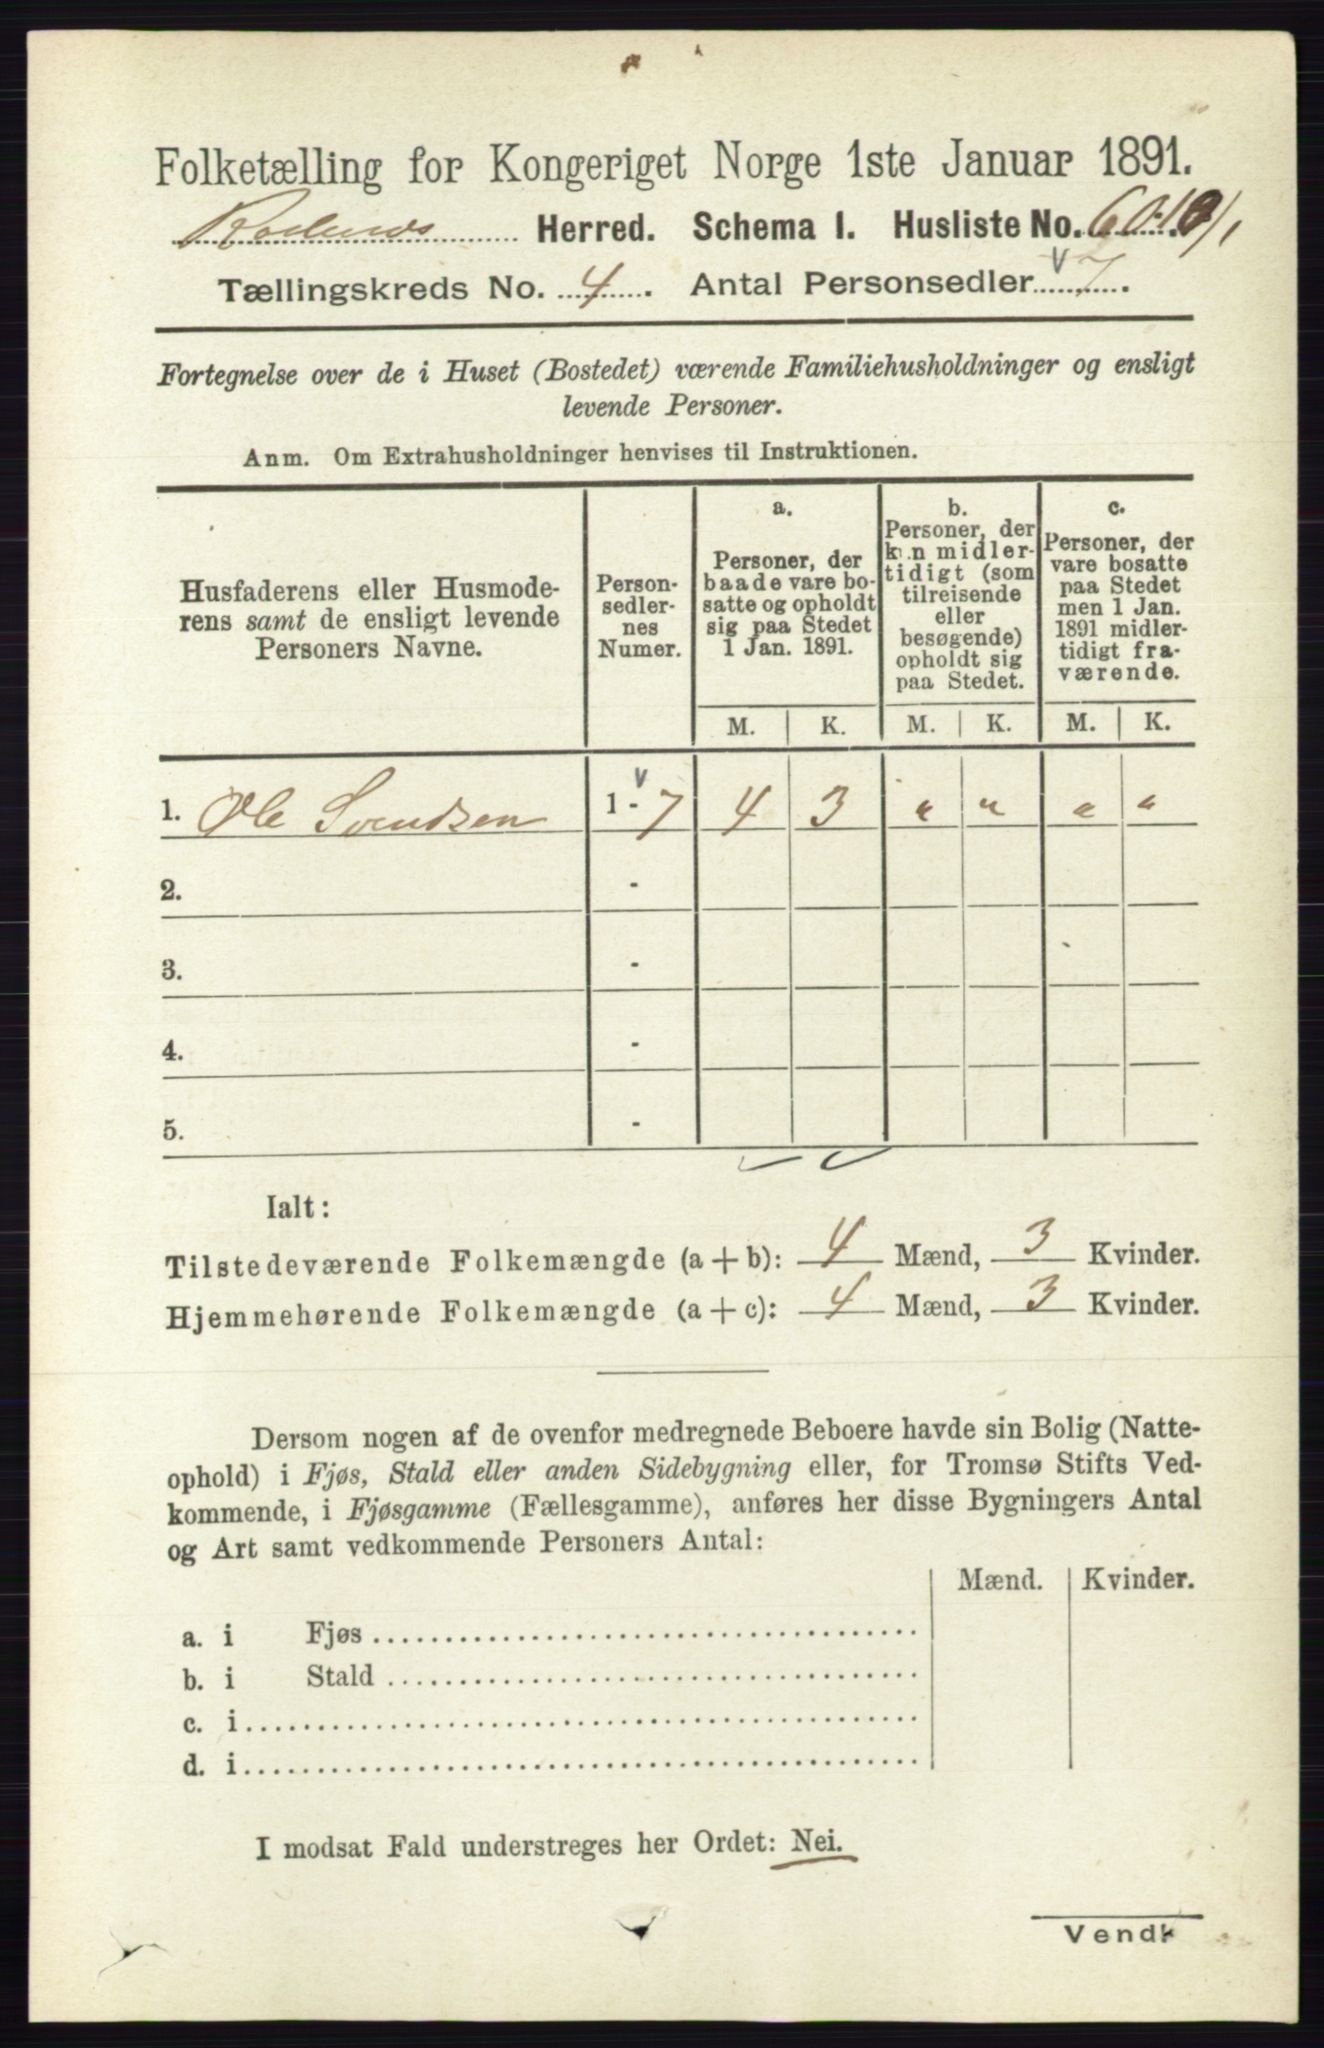 Folketælling for Kongeriget Norge 1ste Januar 1891.
Herred. Schema I. Husliste No.
Tællingskreds No. 4. Antal Personsedler 7.
Fortegnelse over de i Huset (Bostedet) værende Familiehusholdninger og ensligt
levende Personer.
Anm. Om Extrahusholdninger henvises til Instruktionen.
Husfaderens eller Husmode-
rens samt de ensligt levende
Personers Navne.
Person-
sedler-
nes
Numer.
a.
Personer, der
baade vare bo-
satte og opholdt
sig paa Stedet
1 Jan. 1891.
b.
Personer, der
kun midler-
tidigt (som
tilreisende
eller
besøgende)
opholdt sig
paa Stedet.
c.
Personer, der
vare bosatte
paa Stedet
men 1 Jan.
1891 midler-
tidigt fra-
værende.
M. K. M. K. M. K.
1. Ole Svendsen 1 - 7 4 3 " " " "
2. -
3. -
4. -
5. -
Ialt:
Tilstedeværende Folkemængde (a + b): 4 Mænd, 3 Kvinder.
Hjemmehørende Folkemængde (a + c): 4 Mænd, 3 Kvinder.
Dersom nogen af de ovenfor medregnede Beboere havde sin Bolig (Natte-
ophold) i Fjøs, Stald eller anden Sidebygning eller, for Tromsø Stifts Ved-
kommende, i Fjøsgamme (Fællesgamme), anføres her disse Bygningers Antal
og Art samt vedkommende Personers Antal:
Mænd. Kvinder.
a. i Fjøs
b. i Stald
c. i
d. i
I modsat Fald understreges her Ordet: Nei.
Vend!